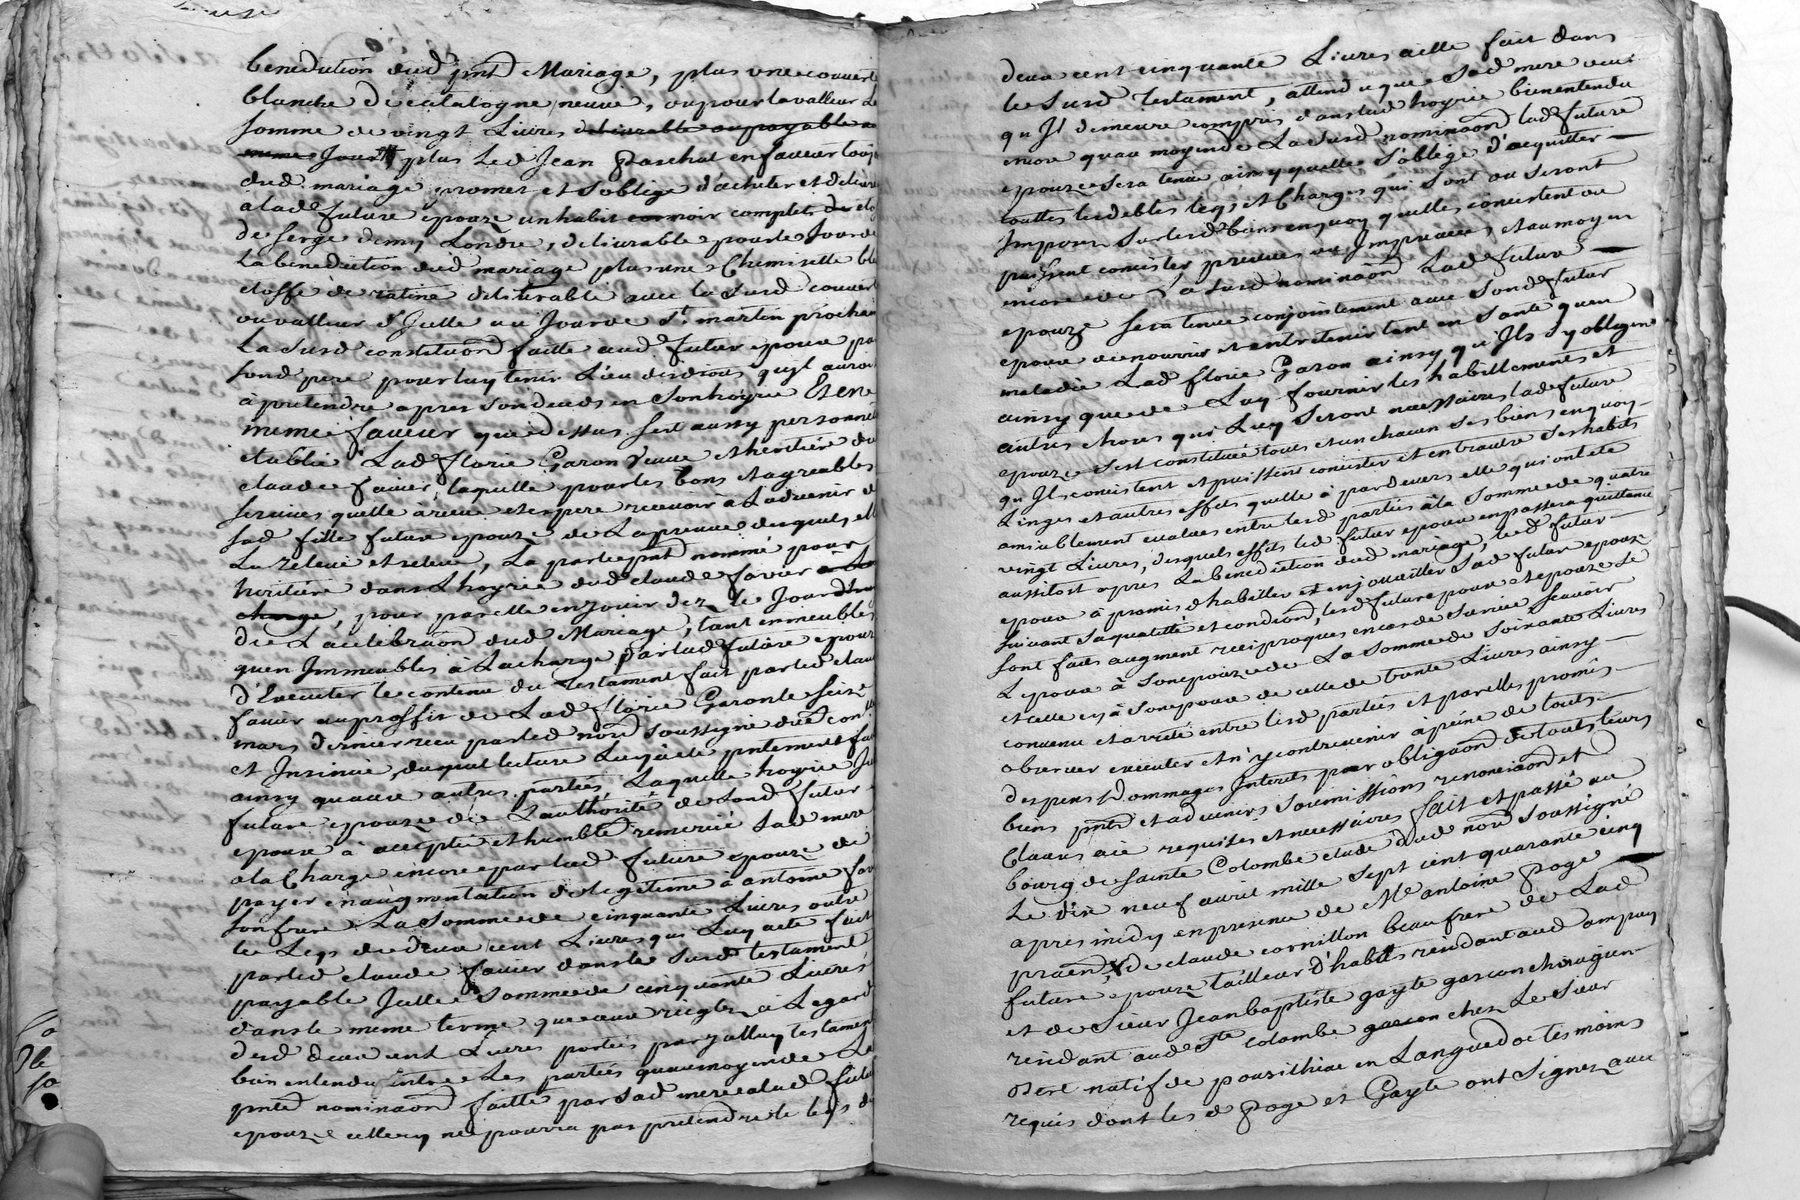 benediction dud pnt Mariage, plus une couverte
blanche de catalogne neuve, ou pour la valleur la
somme de vingt Livres delivrable ou payable au
meme Jour plus Led Jean Paschal en faveur toujo
dud mariage promet et s'oblige d'acheter et delivrer
a lad future epouze un habit noir complet de
de serge demy Londre, delivrable pour le Jour de
La benediction dud mariage plus une Chemisette bl
etoffe de ratine delivrable avec la susd couver
ou valleur d'Jcelle au Jour de St martin prochain
La susd constituon faitte aud futur epoux par
sond pere pour luy tenir Lieu des droits qu'jl auroit
à pretendre apres son deceds en son hoyrie Et en
meme faveur que dessus s'est aussy personnel
etablie Lad florie Garon veuve et heritiere de
claude favier, laquelle pour les bons et agreables
services quelle a receu et espere recevoir à L'advenir de
sad fille future epouze de La preuve desquels ell
La releve et releve, La par le pnt nommé pour
heritiere dans L'hoyrie dud claude favier
charge, pour par elle en jouir dez le Jour
de La celebraon dud Mariage, tant en meubles
quen Jmmeubles à La charge par lad future epouze
d'Executer le contenu du testament fait par led claude
favier au proffit de Lad florie Garon le seize
mars dernier receu par led nore soussigné
et Jnsinué, duquel lecture Luy a été pntement faitte
ainsy quaux autres parties, Laquelle hoyrie
future epouze de L'authorité de sond futur
epoux à accepté et humblet remercié sad mere
a la Charge encore par lad future epouze de
payer en augmentation de legitime à antoine fav
son frere La somme de cinquante Livres outre
le Legs de deux cent Livres qui Luy a eté fait
par led claude favier dans le susd testament
payable Jcelle somme de cinquante Livres
dans le meme terme que aura reiglez à Legard
desd deux cent Livres portées par jcelluy testament
bien entendu entre Les parties quau moyen de La
pnte nominaon faitte par sad mere a lad future
epouze celle cy ne pourra pas pretendre le legs de
deux cent cinquante Livres a elle fait dans
le susd testament, attendu que sad mere veut
qu'Jl demeure compris dans lad hoyrie bien entendu
encore quau moyen de La susd nominaon lad future
epouze sera tenue ainsy quelle s'oblige d'acquitter
touttes lesd debtes legs et Charges qui sont ou seront
Jmposez sur lesd biens en quoy quelles concistent ou
puissent concister, preveues ou Jmpreveues, et au moyen
encore de La susd nominaon Lad future
epouze sera tenue conjointement avec sond futur
epoux de nourrir et entretenir tant en santé quen
maladie Lad florie Garon ainsy qu'Jls s'y obligent
ainsy que de Luy fournir les habillements et
autres choses qui Luy seront necessaires lad future
epouze s'est constituée tous et un chacun ses biens en quoy
qu'Jls concistent et puissent concister et en trautre ses habits
Linges et autres effets quelle à par devers elle qui ont été
amiablement evalues entre lesd parties à la somme de quatre
vingt Livres, desquels effets led futur epoux en passera quittance
aussitost apres La benediction dud mariage, led futur
epoux à promis d'habiller et enjouailler sad future epouze
suivant sa qualitté et condion, lesd future epoux et epouze se
sont faits augment reciproques en cas de survie scavoir
L'epoux à son epouze de La somme de soixante Livres
et celle cy à son epoux de celle de trente Livres ainsy
convenu et arreté entre lesd parties et par elles promis
observer executer et n'y contrevenir à peine de touts
despens Dommages Jnterets par obligaon de touts leurs
biens pnts et advenirs soumissions renonciaon et
Clauses a ce requises et necessaires fait et passé au
bourg de Sainte Colombe etude dud nore soussigné
Le dix neuf avril mille sept cent quarante cinq
apres midy en presence de Me antoine poge
praen, de claude cornillon beaufrere de Lad
future epouze tailleur d'habits residant aud ampuy
et de Sieur Jean baptiste gayte garcon chirugien
residant aud Ste Colombe chez Le sieur
natif de en Languedoc tesmoins
requis dont les d poge et Gayte ont signez avec